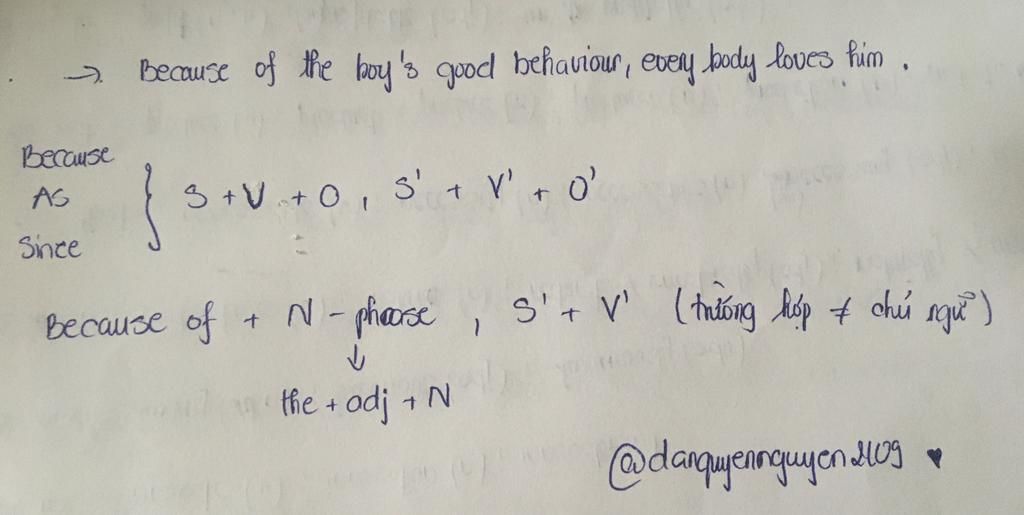 → Because of the boy's good behaviour, every body loves him.
Because
As
Since
} S + V + O, S' + V' + O'
Because of + N - phrase, S' + V' (trường hợp ≠ chủ ngữ)
↓
the + adj + N
@danquyennguyen2109 ♥